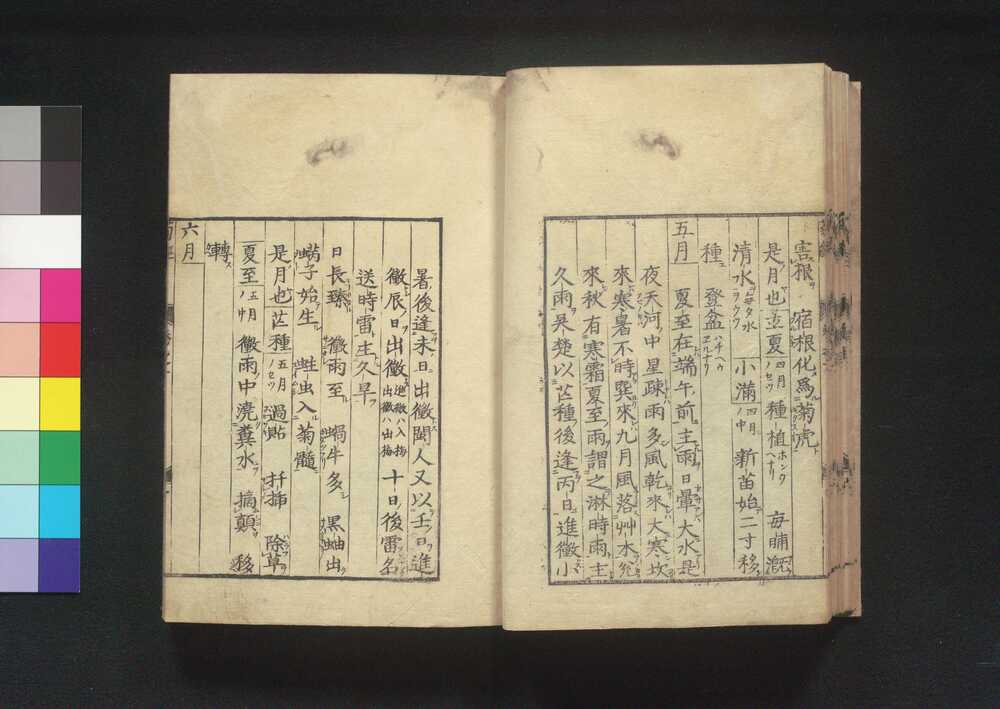 害根 宿根化為菊虎
是月也立夏四月ノセツ 種植ホンウヘナリ 毎晡漑
清水 小満四月ノ中 新苗始二寸移
種 登盆ハチヘウユルナリ
五月 夏至在端午前主雨日暈大水是
夜天河中星疎雨多風乾來大寒坎
來寒暑不時巽來九月風落艸木兊
來秋有寒霜夏至雨謂之淋時雨主
久雨吴楚以芒種後逢丙日進黴小
暑後逢未日出黴閩人又以壬日進
黴辰日出黴進黴ハ入梅出黴ハ出梅 十日後雷名
送時雷主久旱
日長臻 黴雨至 蝸牛多 黒蚰出
子始生 蛀虫入菊髓
是月也芒種五月ノセツ 過貼 扦挿 除草
夏至五月ノ中 黴雨中澆糞水 摘顛 移
轉
六月